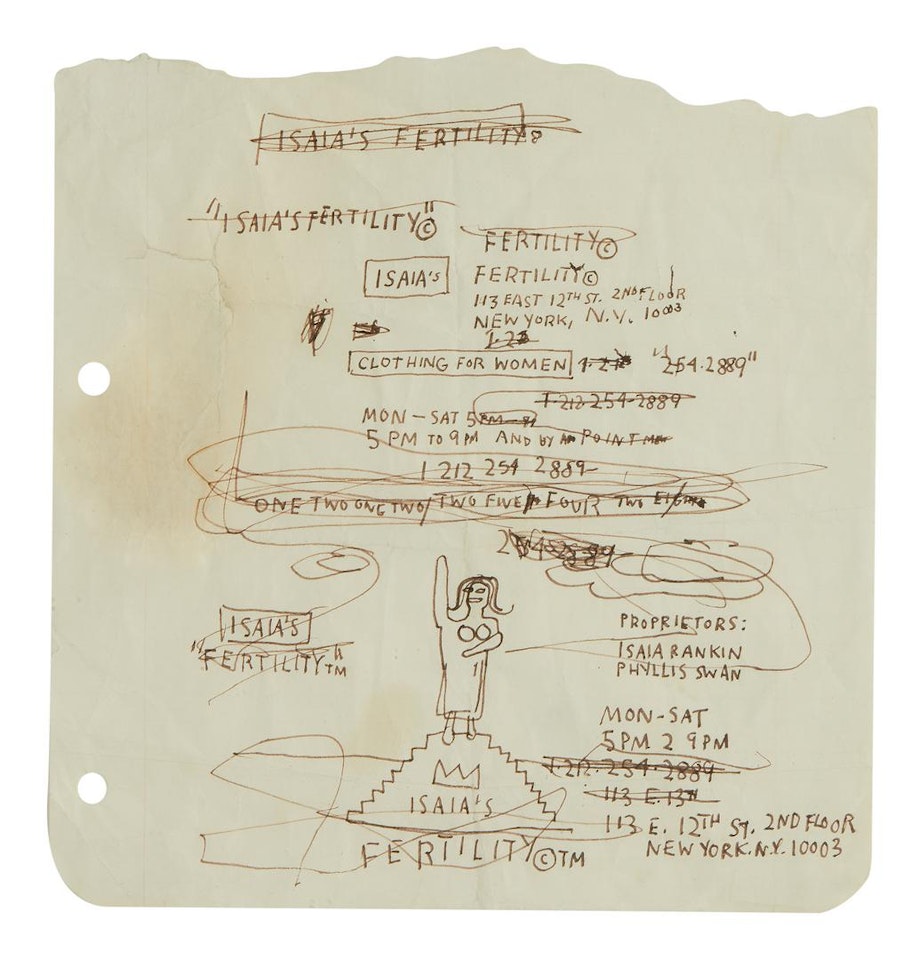 ISAIA'S FERTILITY
"ISAIA'S FERTILITY"©
FERTILITY©
ISAIA'S
FERTILITY©
113 EAST 12TH ST. 2ND FLOOR
NEW YORK, N.Y. 10003
1·2
CLOTHING FOR WOMEN 1·21 "254·2889"
1·212·254·2889
MON – SAT 5PM – 9
5 PM TO 9 PM AND BY APOINTM
1 212 254 2889
ONE TWO ONE TWO / TWO FIVE FOUR TWO EIGH
254·2889
ISAIA'S
"FERTILITY"TM
PROPRIETORS:
ISAIA RANKIN
PHYLLIS SWAN
MON-SAT
5PM 2 9PM
1·212·254·2889
113 E. 13TH
113 E. 12TH ST. 2ND FLOOR
NEW YORK. N.Y. 10003
ISAIA'S
FERTILITY©TM